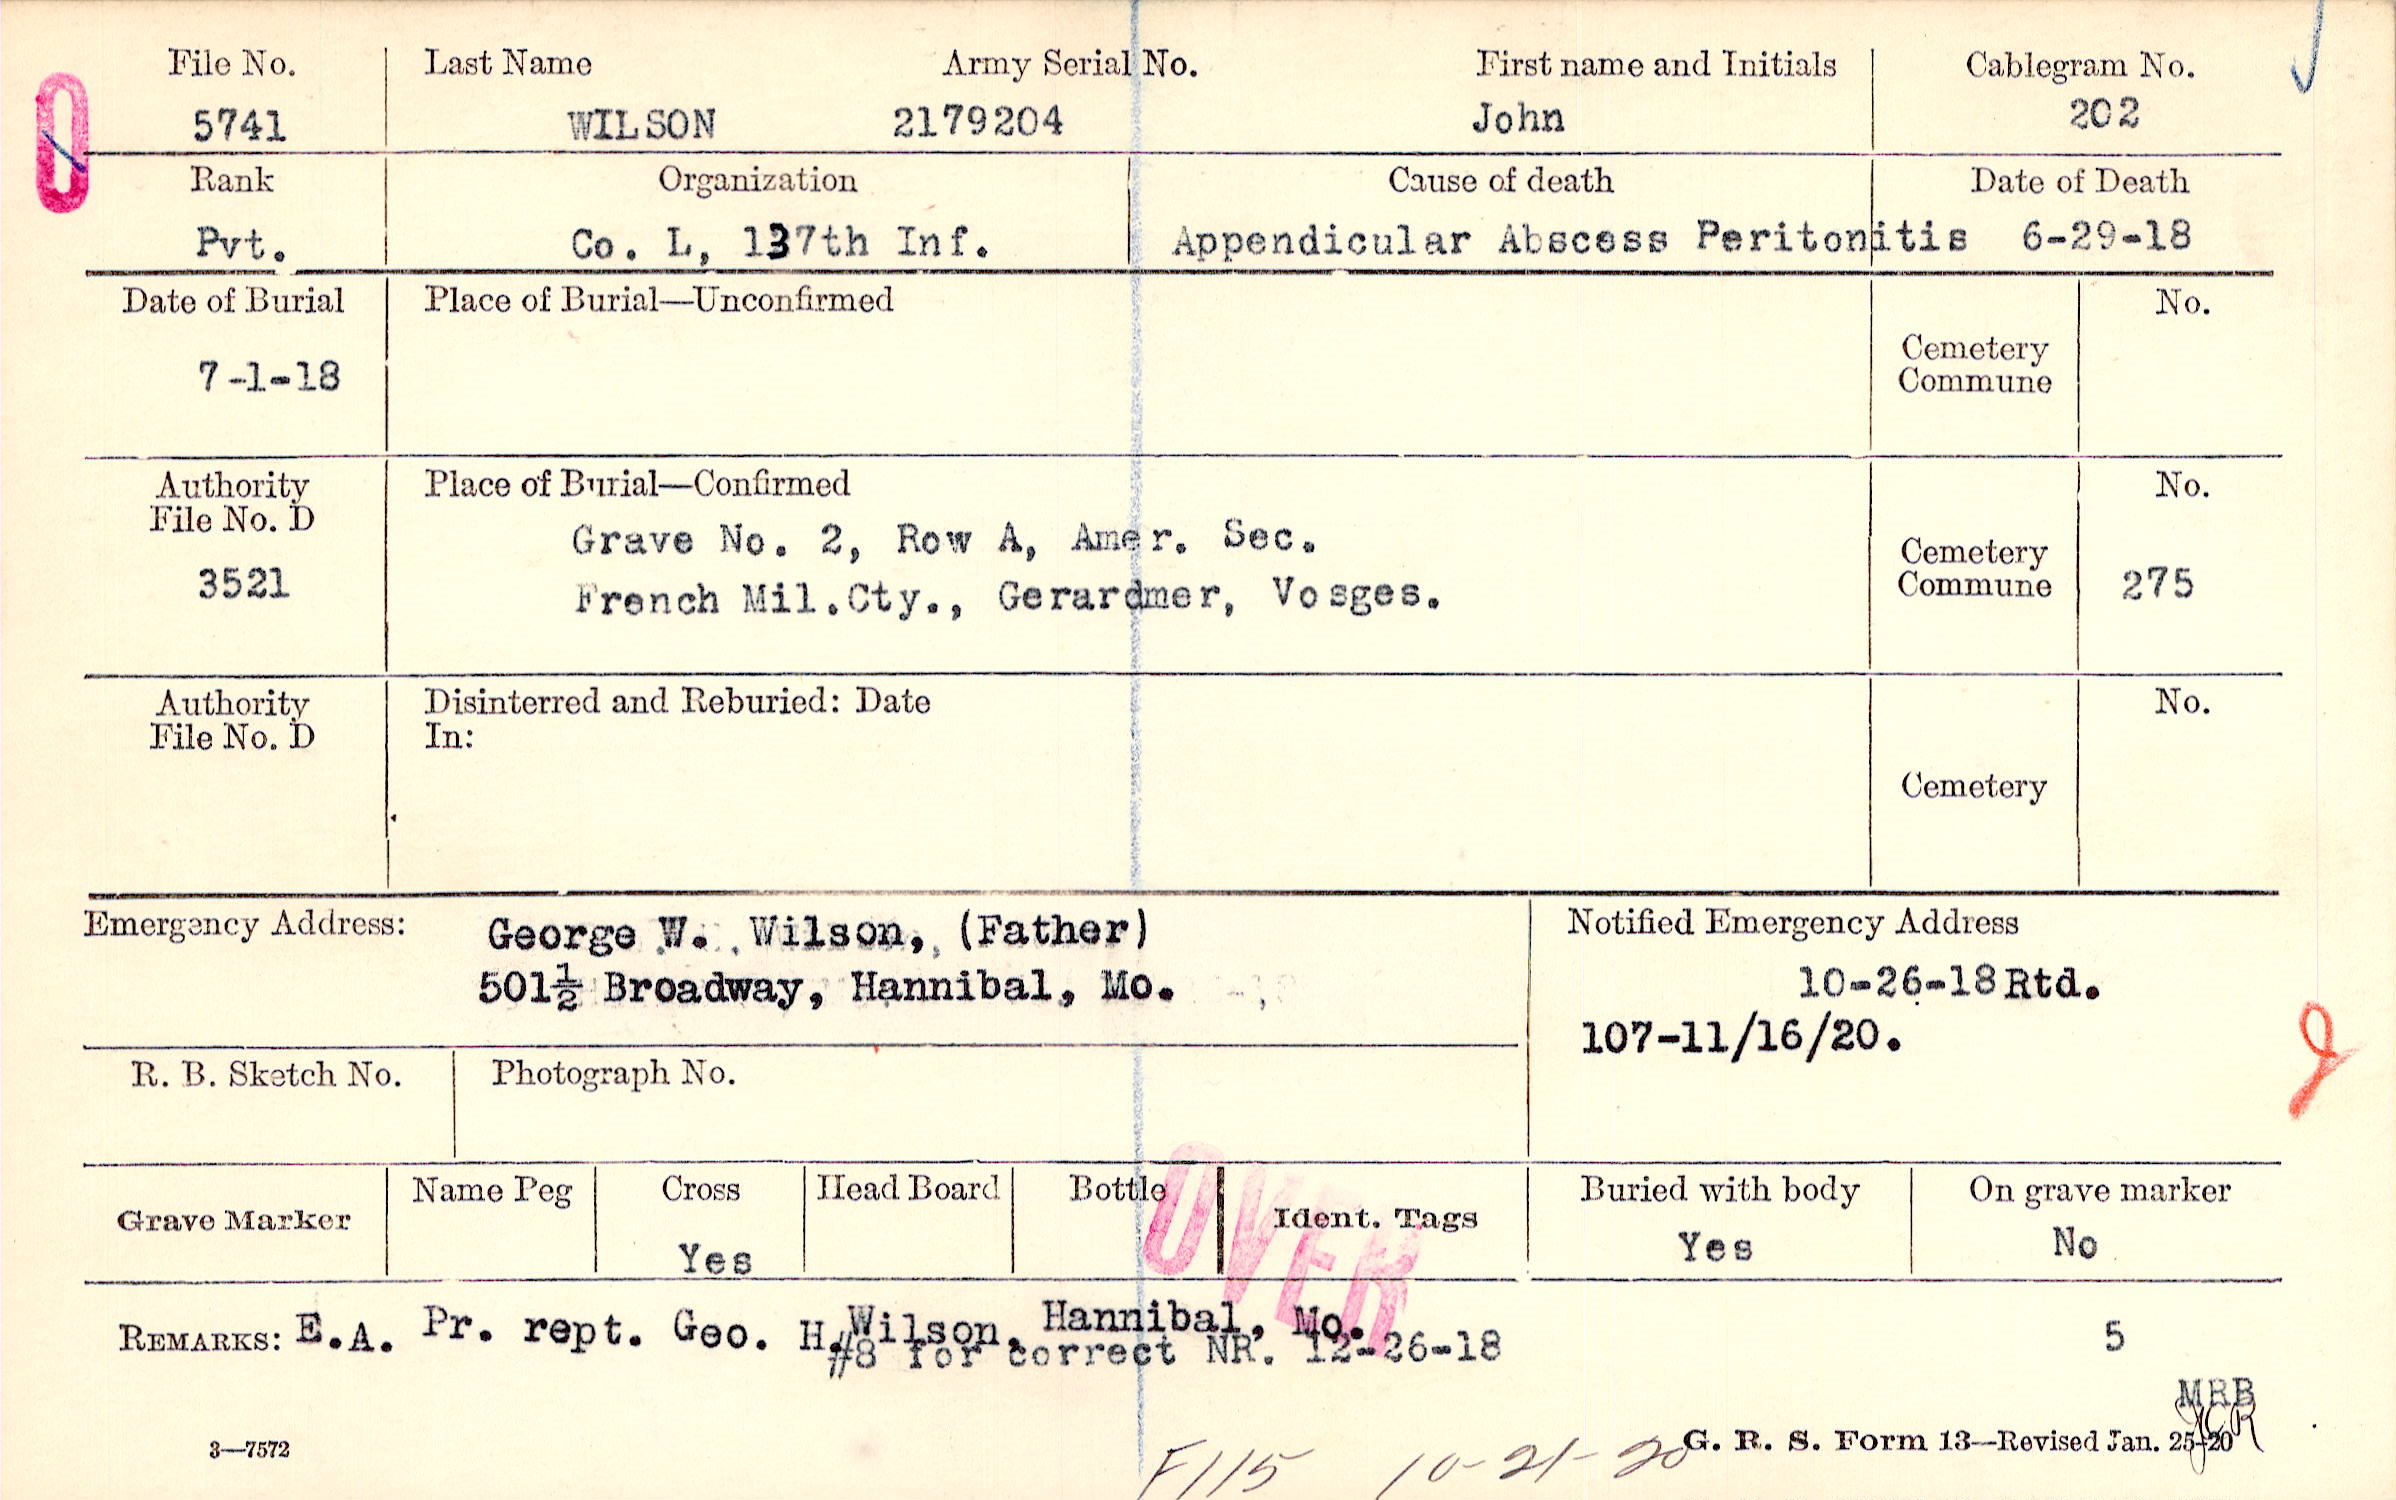 File No. Last Name Army Serial No. First name and Initials Cablegram No.
5741 WILSON 2179204 John 202
Rank Organization Cause of death Date of Death
Pvt. Co. L, 137th Inf. Appendicular Abscess Peritonitis 6-29-18
Date of Burial Place of Burial—Unconfirmed No.
Cemetery
Commune
7-1-18
Authority Place of Burial—Confirmed No.
File No. D
Grave No. 2, Row A, Amer. Sec.
Cemetery
3521 Commune 275
French Mil.Cty., Gerardmer, Vosges.
Authority Disinterred and Reburied: Date No.
File No. D In:
Cemetery
Emergency Address: George W. Wilson, (Father) Notified Emergency Address
501½ Broadway, Hannibal, Mo. 10-26-18 Rtd.
107-11/16/20.
R. B. Sketch No. Photograph No.
Grave Marker Name Peg Cross Head Board Bottle Ident. Tags Buried with body On grave marker
Yes Yes No
OVER
REMARKS: E.A. Pr. rept. Geo. H. Wilson, Hannibal, Mo. 5
#8 for correct NR. 12-26-18
MRB
JCR
3—7572 G. R. S. Form 13—Revised Jan. 25-20
F115 10-21-20